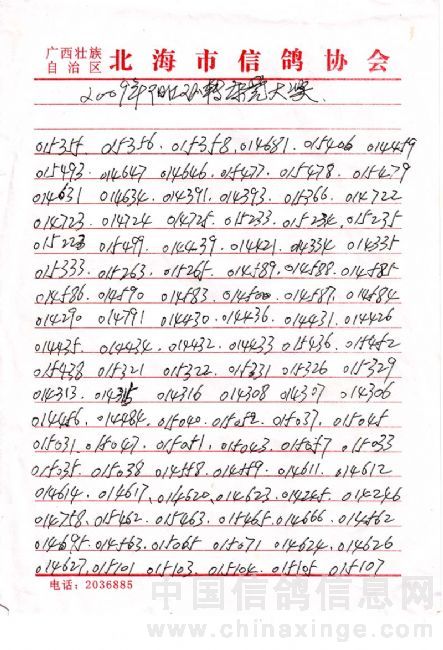 广西壮族
自治区 北海市信鸽协会
2009年 大奖
015355. 015356. 015358. 014681. 015406 014459
015493. 014647 014646. 015477. 015478. 015479
014631 014634. 014391. 014393. 015366. 014722
014723. 014724 014725. 015233. 015234. 015235
015223 015499. 014439. 014421 014334 014335
015333. 015263. 015265. 014589. 014588. 014585
014586. 014590 014583. 014587. 014584
014290 014791 014430. 014436. 014431. 014426
014435. 014434. 014432. 014433 015436. 015452
015438 015321 015322. 015331 015326 015329
014313. 014315 014316 014308 014307 014306
014486. 014484. 015040. 015052. 015037. 015045
015031. 015047. 015051. 015043. 015057. 015033
015035. 015038 014558. 014559. 014611. 014612
014614. 014617. 014620. 014623. 014245. 014246
014758. 015462. 015463. 015465. 014666. 014562
014695. 014563. 015065 015071 014624. 014626
014627. 015101 015103. 015104. 015105 015107
电话：2036885
中国信鸽信息网
www.chinaxinge.com